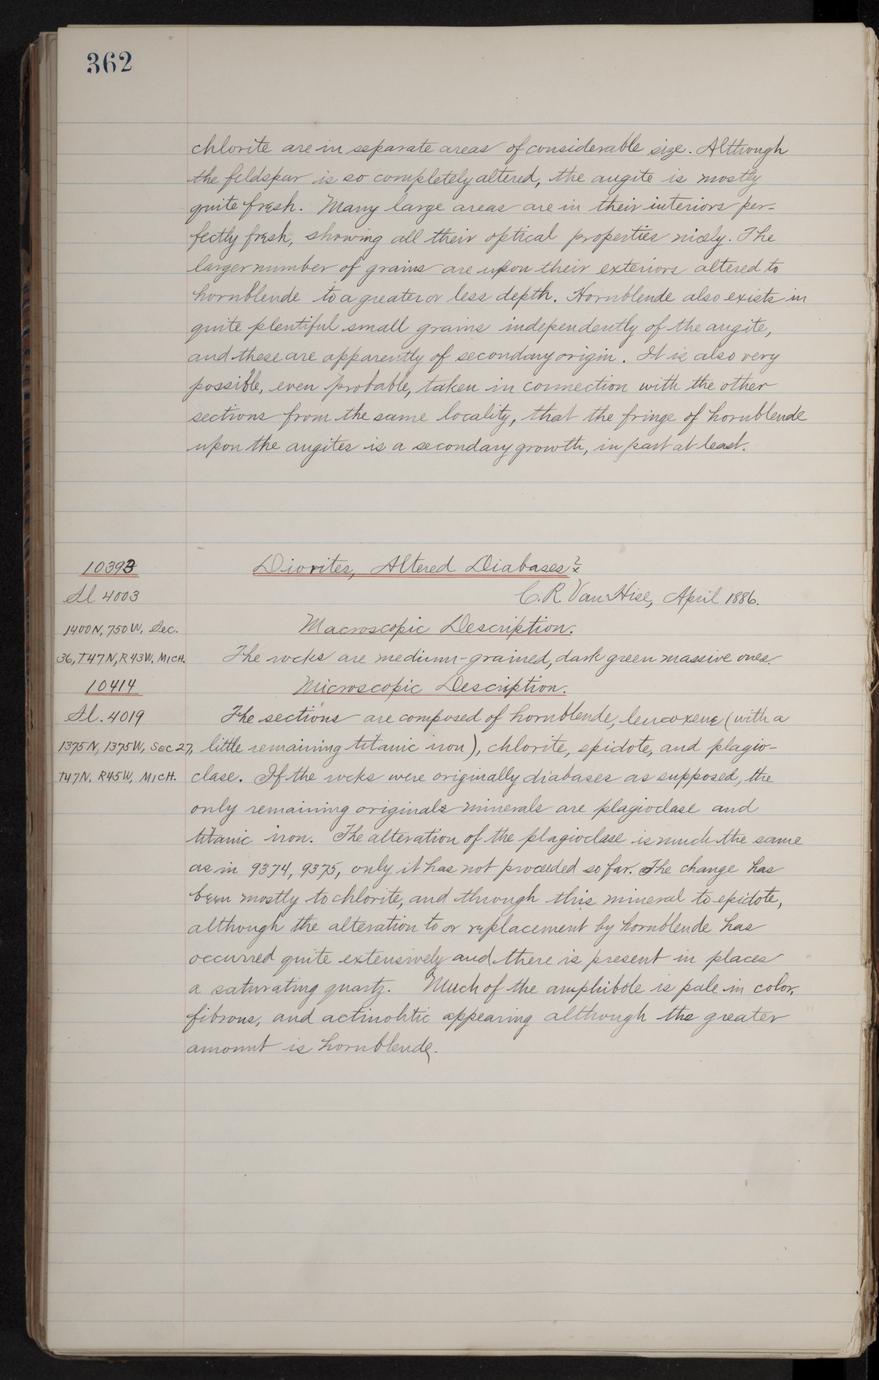 362
chlorite are in separate areas of considerable size. Although
the feldspar is so completely altered, the augite is mostly
quite fresh. Many large areas are in their interiors per-
fectly fresh, showing all their optical properties nicely. The
larger number of grains are upon their exteriors altered to
hornblende to a greater or less depth. Hornblende also exists in
quite plentiful small grains independently of the augite,
and these are apparently of secondary origin. It is also very
possible, even probable, taken in connection with the other
sections from the same locality, that the fringe of hornblende
upon the augites is a secondary growth, in part at least.
10393 Diorites, Altered Diabases?
Sl. 4003 C. R. Van Hise, April 1886.
1400 N, 750 W, Sec. Macroscopic Description.
36, T47N, R43W. MICH. The rocks are medium-grained, dark green massive ones.
10414 Microscopic Description.
Sl. 4019 The sections are composed of hornblende, leucoxene (with a
1375 N, 1375 W, Sec 27, little remaining titanic iron), chlorite, epidote, and plagio-
T47N. R45W, MICH. clase. If the rocks were originally diabases as supposed, the
only remaining originals minerals are plagioclase and
titanic iron. The alteration of the plagioclase is much the same
as in 9374, 9375, only it has not proceeded so far. The change has
been mostly to chlorite, and through this mineral to epidote,
although the alteration to or replacement by hornblende has
occurred quite extensively and there is present in places
a saturating quartz. Much of the amphibole is pale in color,
fibrous, and actinolitic appearing although the greater
amount is hornblende.